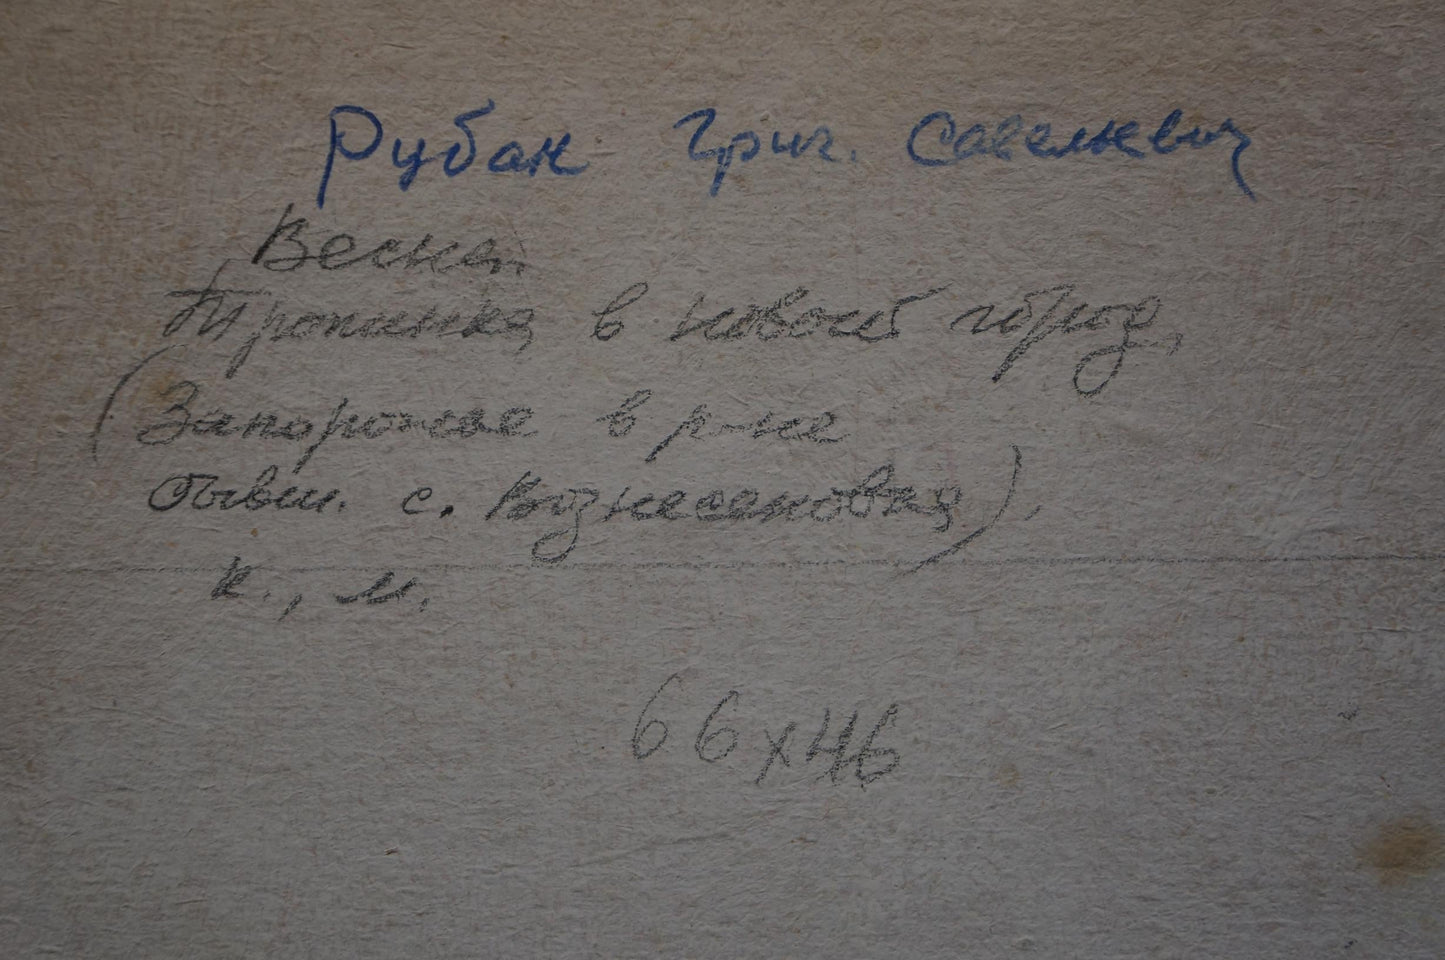 Рубан Григ. Савельевич
Весна.
Тропинка в новый город,
(Запорожье в р-не
бывш. с. Вознесеновка).
к., м.
66х46